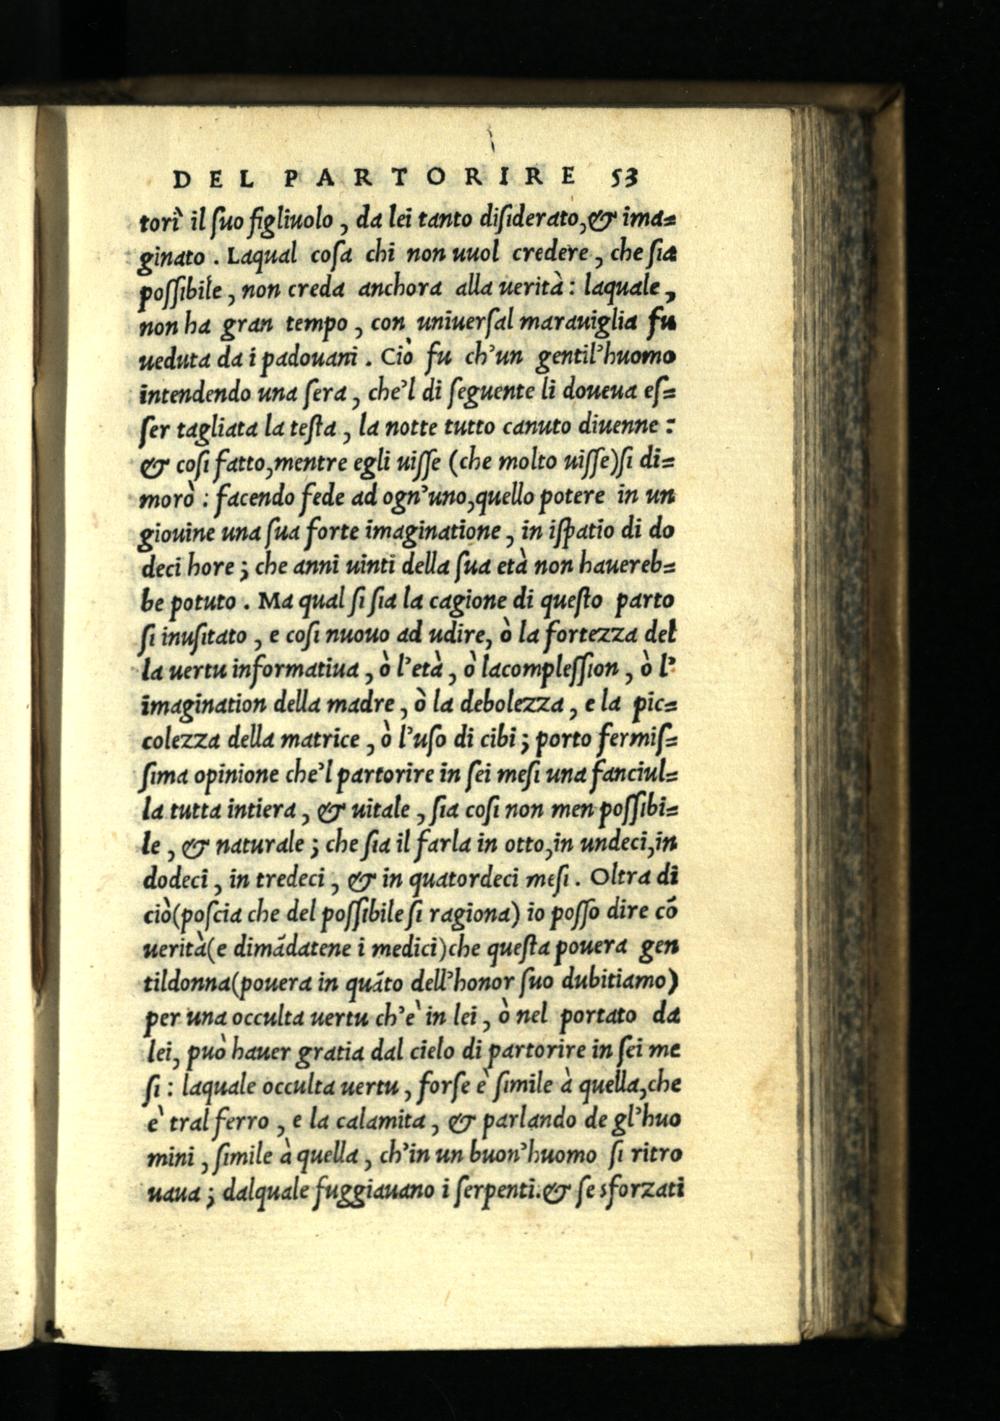 DEL PARTORIRE 53
torì il ſuo figliuolo , da lei tanto diſiderato,& ima=
ginato . Laqual coſa chi non uuol credere , che ſia
poſſibile , non creda anchora alla uerità : laquale ,
non ha gran tempo , con uniuerſal marauiglia fu
ueduta da i padouani . Ciò fu ch'un gentil'huomo
intendendo una ſera , che'l dì ſeguente li doueua eſ=
ſer tagliata la teſta , la notte tutto canuto diuenne :
& coſi fatto,mentre egli uiſſe (che molto uiſſe)ſi di=
morò : facendo fede ad ogn'uno,quello potere in un
giouine una ſua forte imaginatione , in iſpatio di do
deci hore ; che anni uinti della ſua età non hauereb=
be potuto . Ma qual ſi ſia la cagione di queſto parto
ſi inuſitato , e coſi nuouo ad udire, ò la fortezza del
la uertu informatiua , ò l'età , ò lacompleſſion , ò l'
imagination della madre , ò la debolezza , e la pic=
colezza della matrice , ò l'uſo di cibi ; porto fermiſ=
ſima opinione che'l partorire in ſei meſi una fanciul=
la tutta intiera , & uitale , ſia coſi non men poſſibi=
le , & naturale ; che ſia il farla in otto,in undeci,in
dodeci , in tredeci , & in quatordeci meſi . Oltra di
ciò(poſcia che del poſſibile ſi ragiona) io poſſo dire cõ
uerità(e dimãdatene i medici)che queſta pouera gen
tildonna(pouera in quãto dell'honor ſuo dubitiamo)
per una occulta uertu ch'è in lei , ò nel portato da
lei, può hauer gratia dal cielo di partorire in ſei me
ſi : laquale occulta uertu , forſe è ſimile à quella,che
è tral ferro , e la calamita , & parlando de gl'huo
mini , ſimile à quella , ch'in un buon'huomo ſi ritro
uaua ; dalquale fuggiauano i ſerpenti.& ſe sforzati